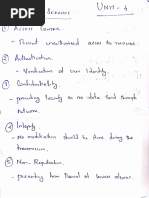 Unit - 4
Services
① Access Control
- Prevent unauthorized access to resources
② Authentication
- Verification of User Identity.
③ Confidentiality
- providing Security so no data send through
network.
④ Integrity
- no modification should be done during the
transmission.
⑤ Non-Repudiation
- preventing from Denial of service